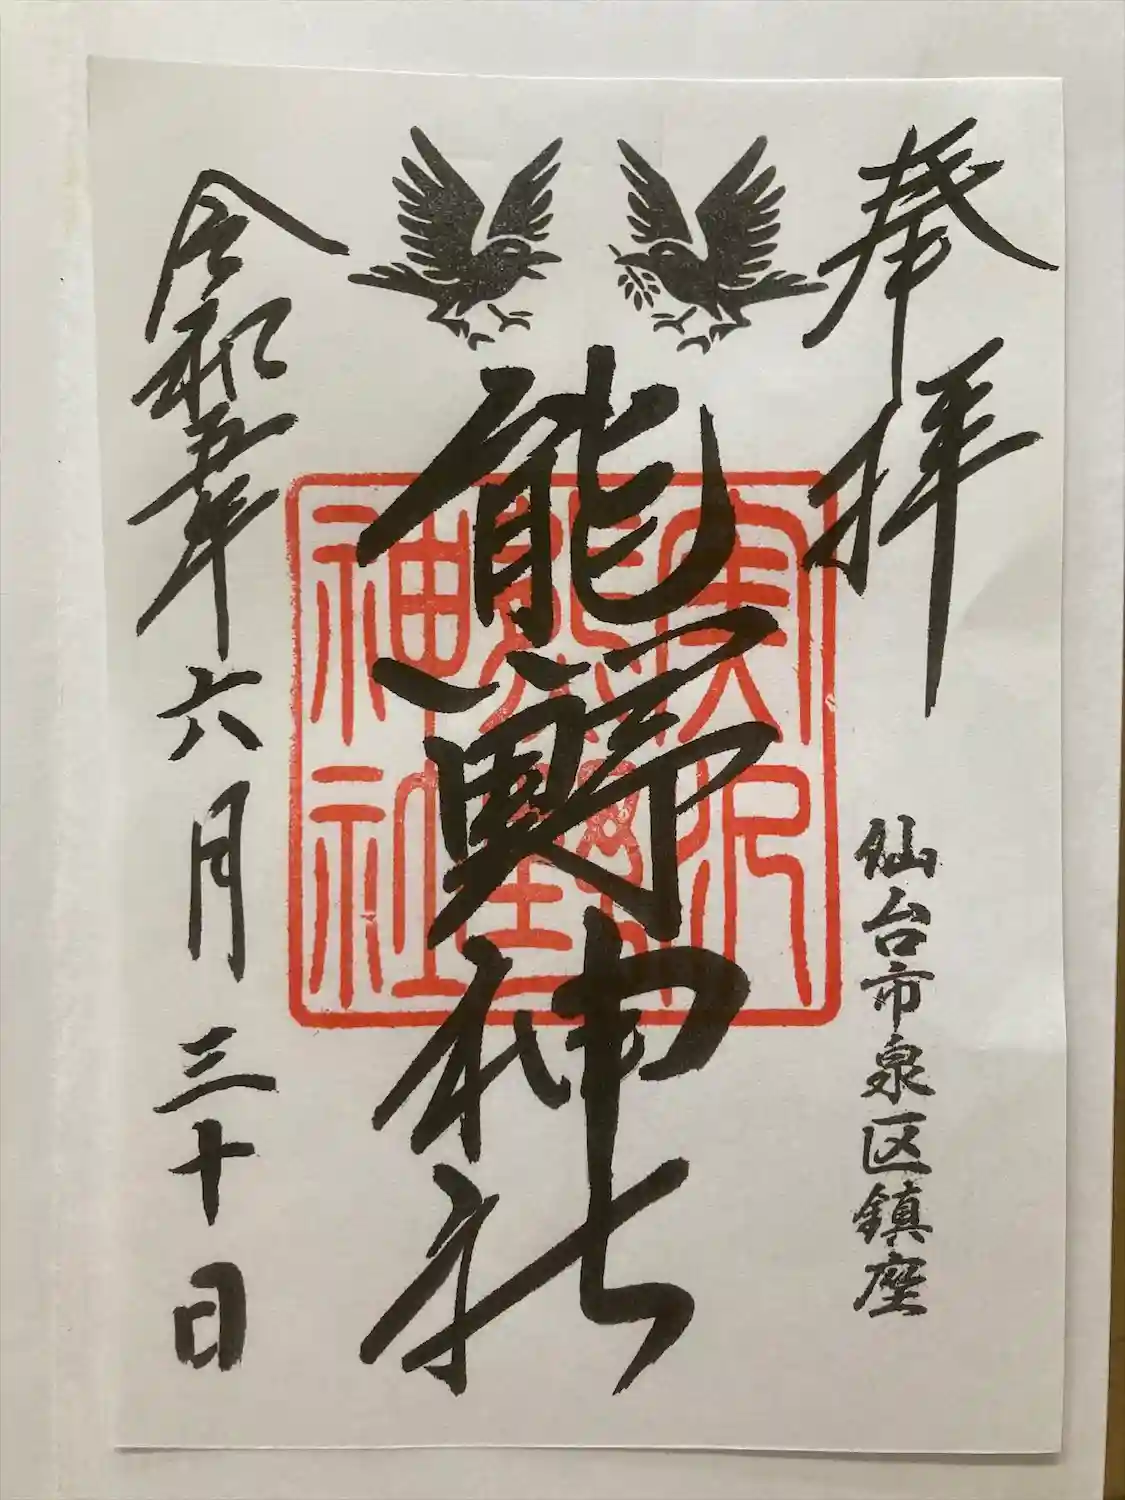 奉拝
仙台市泉区鎮座
熊野神社
実沢
熊野
神社
令和五年六月三十日